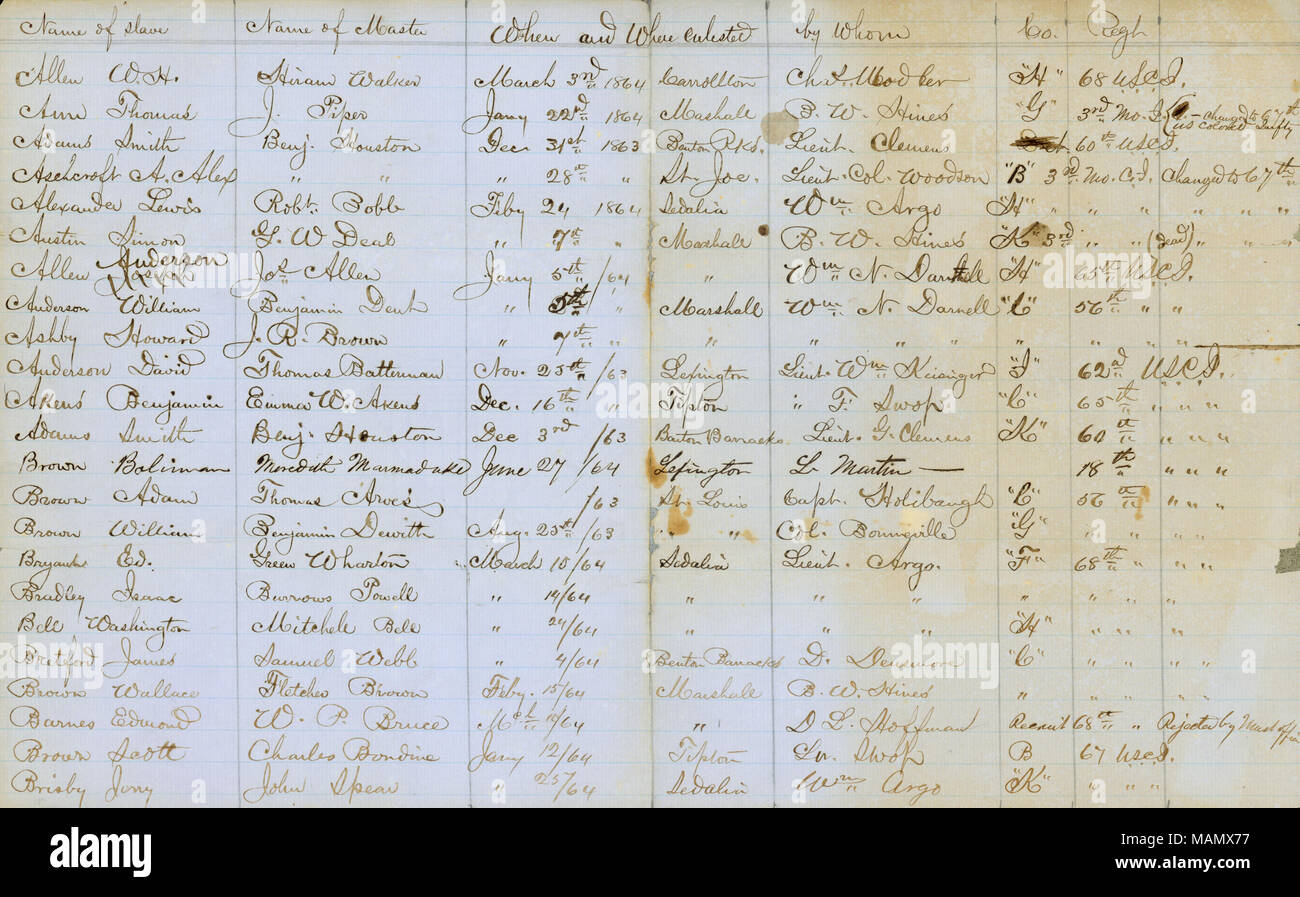 Name of slave Name of Master When and Where enlisted by Whom Co. Regt
Allen W. H. Hiram Walker March 3rd 1864 Carrollton Chs. "H" 68 U.S.C.I.
Ann Thomas J. Piper Jany 22nd 1864 Mashall B. W. Hines "G" 3rd Mo. changed to 67th us colored Infty
Adams Smith Benj. Houston Dec 31st 1863 Benton Bks. Lieut. Clemens 60th U.S.C.I.
Ashcroft A. Alex " " " 28th " St. Joe. Lieut. Col. Woodson "B" 3rd Mo. C.I. Changed to 67th
Alexander Lewis Robt. Bobb Feby 24 1864 Sedalia Wm Argo "H" " " " " " "
Austin Simon G. W Deal " 7th " Marshall B. W. Hines "K" 3rd " " (dead) " " "
Allen Anderson Jos Allen Jany 5th /64 " Wm N. Darnell "H" 65th U.S.C.I.
Anderson William Benjamin Dent " 5th / " Marshall Wm N. Darnell "C" 56th " "
Ashby Howard J. R. Brown 7th " " " " " " " "
Anderson David Thomas Batterman Nov. 25th /63 Lexington Lieut. Wm Keisinger "I" 62d U.S.C.I.
Akens Benjamin Emma W. Akens Dec. 16th " Tipton " F. Swop "C" 65th " " "
Adams Smith Benj. Houston Dec 3rd /63 Benton Barracks Lieut. G. Clemens "K" 60th " " "
Brown Boliman Meredith Marmaduke June 27 /64 Lexington L. Martin — 18th " " "
Brown Adam Thomas /63 St. Louis Capt. Holibaugh "C" 56th " "
Brown William Benjamin Dewitt Aug. 25th /63 " " Col. Bonneville "G"
Bryant Ed. Green Wharton March 10/64 Sedalia Lieut. Argo. "F" 68th " " "
Bradley Isaac Burrows Powell " 14/64 " " " " " " "
Bell Washington Mitchell Bell " 24/64 " " " "H" " " "
James Samuel Webb " 4/64 Benton Barracks D. Densmore "C" " " "
Brown Wallace Fletcher Brown Feby. 15/64 Marshall B. W. Hines " " " "
Barnes Edmond W. P. Bruce Mch 10/64 " D L. Hoffman Recruit 68th " Rejected by Must offi
Brown Scott Charles Bondine Jany 12/64 Tipton Lu. Swop B 67 U.S.C.I.
Brisby Jerry John Spear " 25/64 Sedalia Wm Argo "K" " " "
alamy
Image ID: MAMX77
www.alamy.com